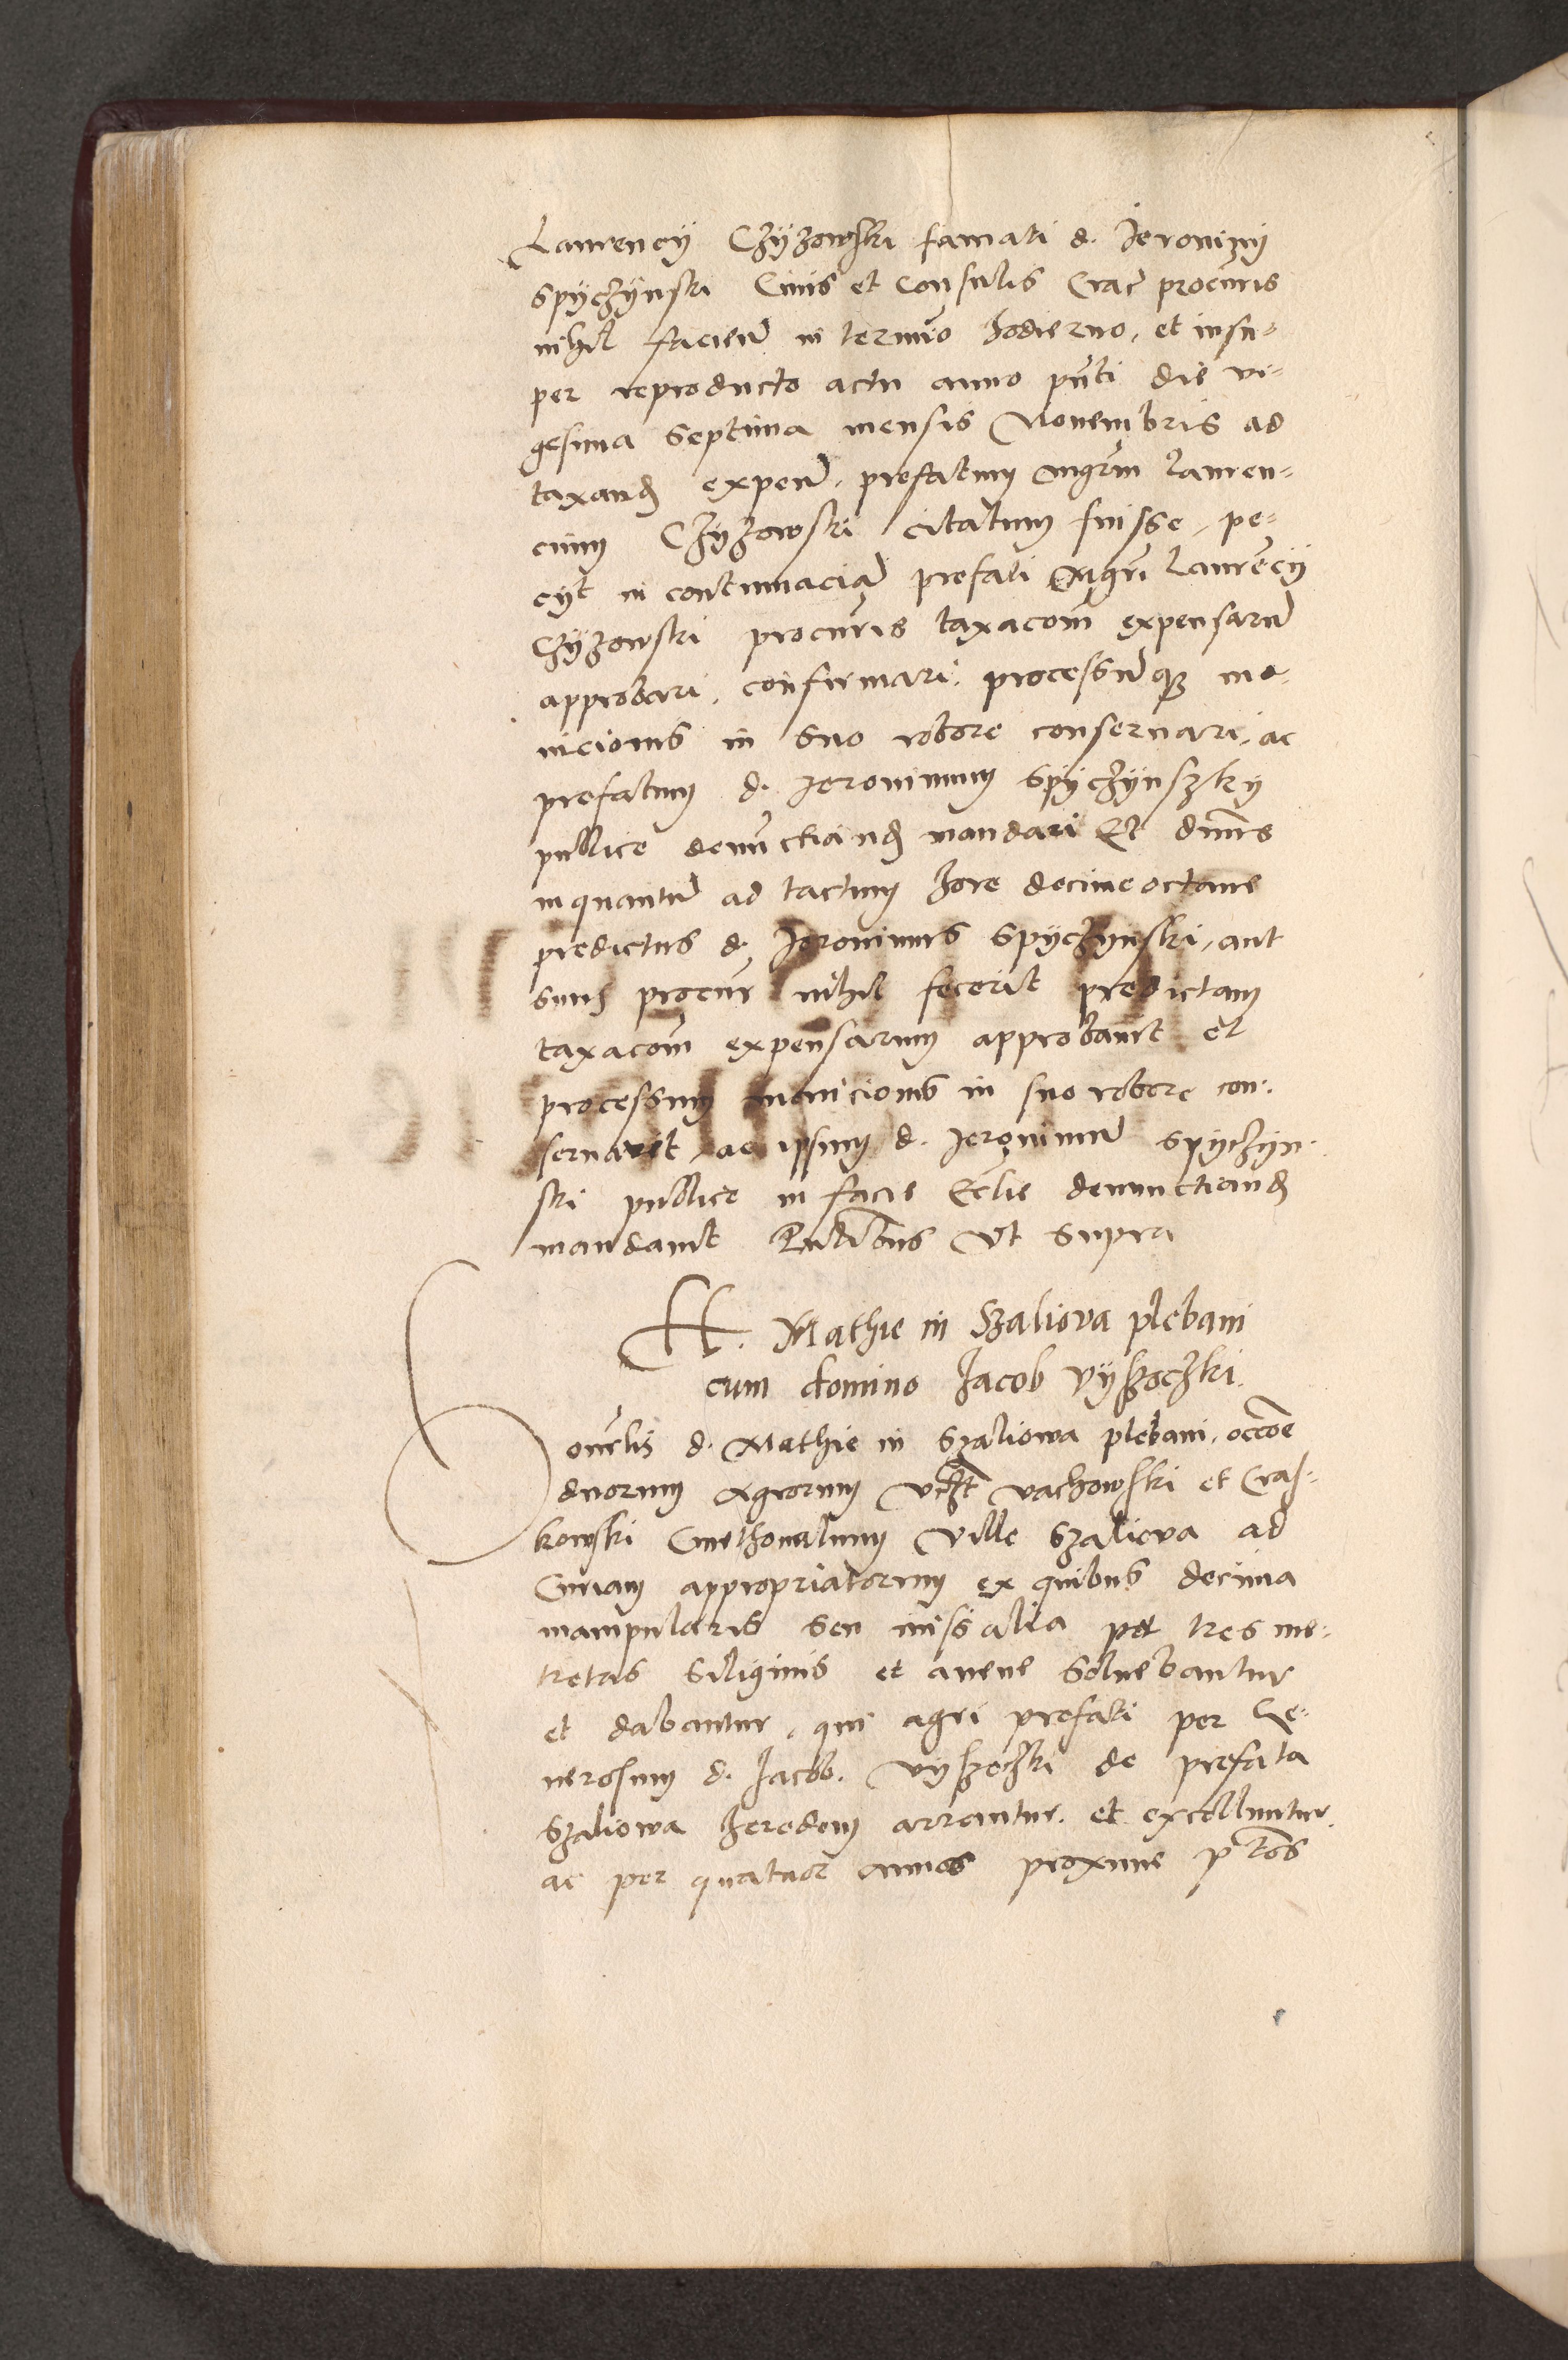 Laurencij Czÿzowski famati d. Ieronimj
Spÿczÿnski Civis et Consulis Crac procuris
nihil facien in termino hodierno, et insu-
per reproducto actu anno pnti die vi-
gesima septima mensis Novembris ad
taxand expen. prefatum mgrm Lauren-
cium Czÿzowski citatum fuisse, pe-
cyt in contumaciam prefati Mgri Laurecij
Czÿzowski procuris taxacom expensaru
approbari, confirmari, processumq mo-
nicionis in suo robore conservari, ac
prefatum d. Ieronimum Spÿczÿnszky
publice denuctiand mandari Et dnus
inquantu ad tactum hore decime octave
predictus d. Ieronimus Spÿczynski, aut
suus procur nihil fecerit predictam
taxacom expensarum approbavit et
processum monicionis in suo robore con-
servavit, ac ipsum d. Ieronimu Spÿczÿn-
ski publice in facie Ecclie denunctiand
mandavit Pntibus Vt supra
H. Mathie in Szaliova plebani
cum domino Iacob Vÿszoczki.
d. Mathie in Szaliowa plebani, occoe
duorum Agrorum Vachowski et Cras-
kowski Cmethonalium Ville Szaliova ad
Curiam appropriatorum ex quibus decima
manipularis seu missalia per tres me-
tretas siliginis et avene solvebantur
et dabantur, qui agri prefati per Ge-
nerosum d. Iacob. Vyszoczki de prefata
Szaliowa heredem arrantur. et excolluntur
ac per quatuor annos proxime ptos